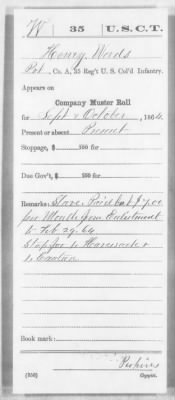 W | 35 | U.S.C.T.
Henry Words
Pvt., Co. A, 35 Reg't U. S. Col'd Infantry.
Appears on
Company Muster Roll
for Sept & October, 1864.
Present or absent Present
Stoppage, $ 100 for
Due Gov't, $ 100 for
Remarks: Slave Paid but $7.00
per Month from Enlistment
to Feb 29. 64
Stop for 1 Haversack &
1 Canteen
Book mark:
Perkins
(358) Copyist.